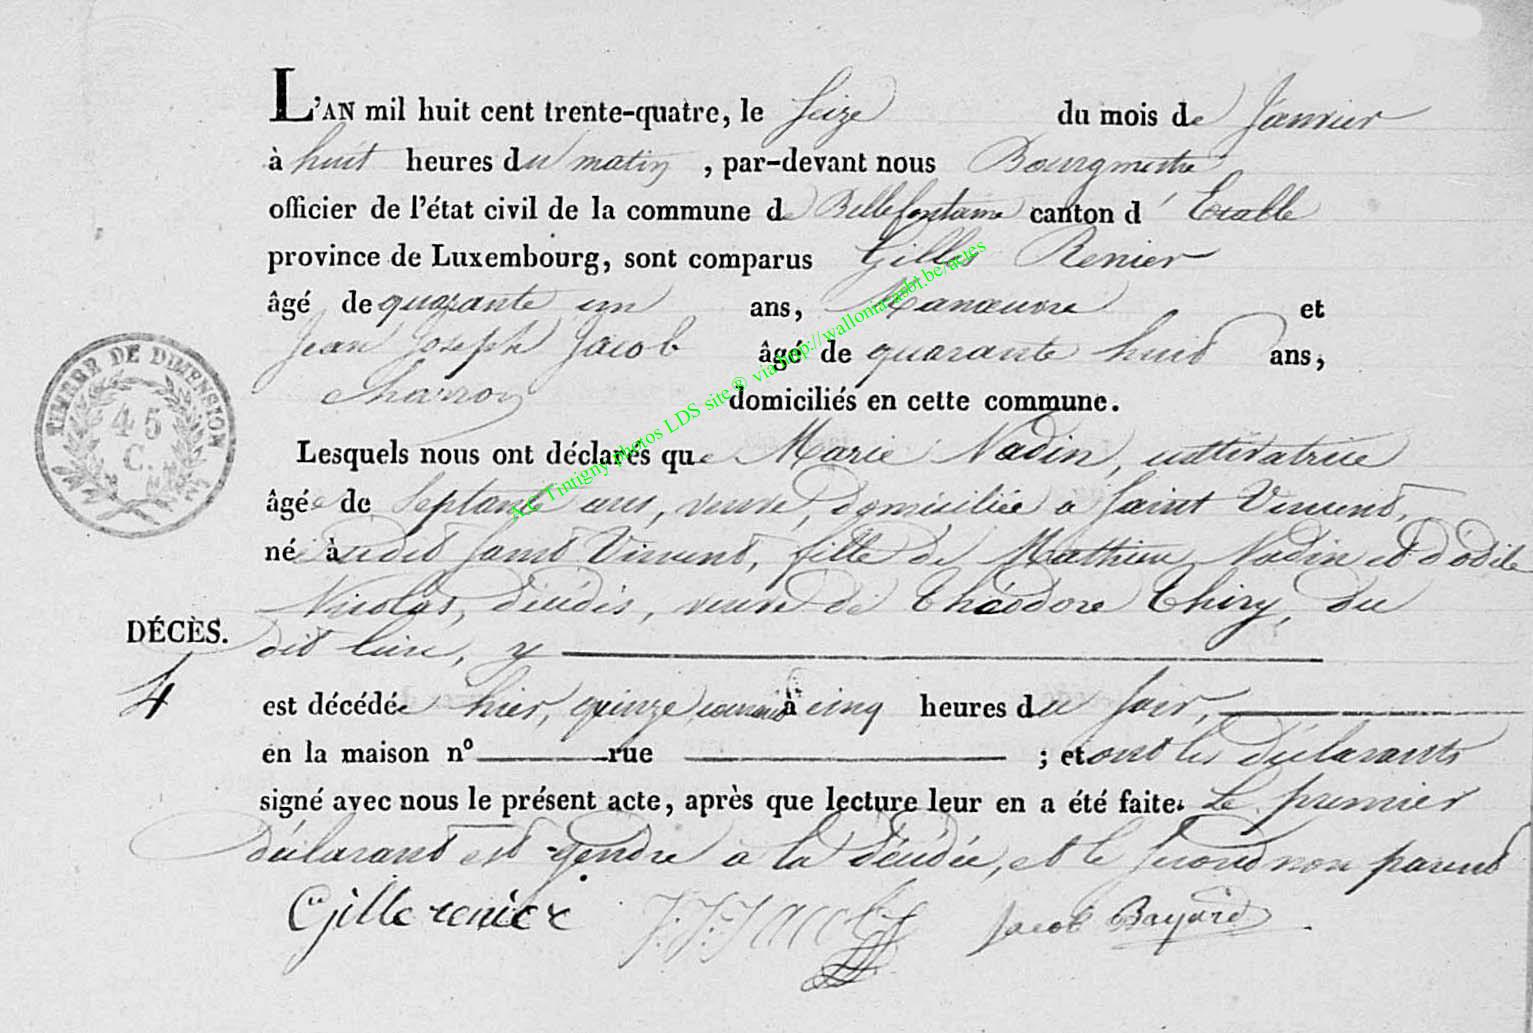 L'AN mil huit cent trente-quatre, le Seize du mois de Janvier
à huit heures du matin, par-devant nous Bourgmestre
officier de l'état civil de la commune de Bellefontaine canton d'Etalle
province de Luxembourg, sont comparus Gilles Renier
âgé de quarante un ans, Manœuvre et
Jean Joseph Jacob âgé de quarante huit ans,
Charron domiciliés en cette commune.
Lesquels nous ont déclarés que Marie Nadin, cultivatrice
âgée de Septante ans, veuve, domiciliée a Saint Vincent,
née audit Saint Vincent, fille de Mathieu Nadin et d'odile
Nicolas, décédés, veuve de Théodore Thiry, du
dit lieu, y
DÉCÈS.
4
est décédée hier, quinze courant à cinq heures du soir,
en la maison n° rue ; et ont les déclarants
signé avec nous le présent acte, après que lecture leur en a été faite. Le premier
déclarant est gendre a la décédée, et le second non parent
Gille renier J. J. Jacob Jacob Bayard
TIMBRE DE DIMENSION
45
C.
A.G Tintigny photos LDS site® via http://wallonia.asbl.be/actes